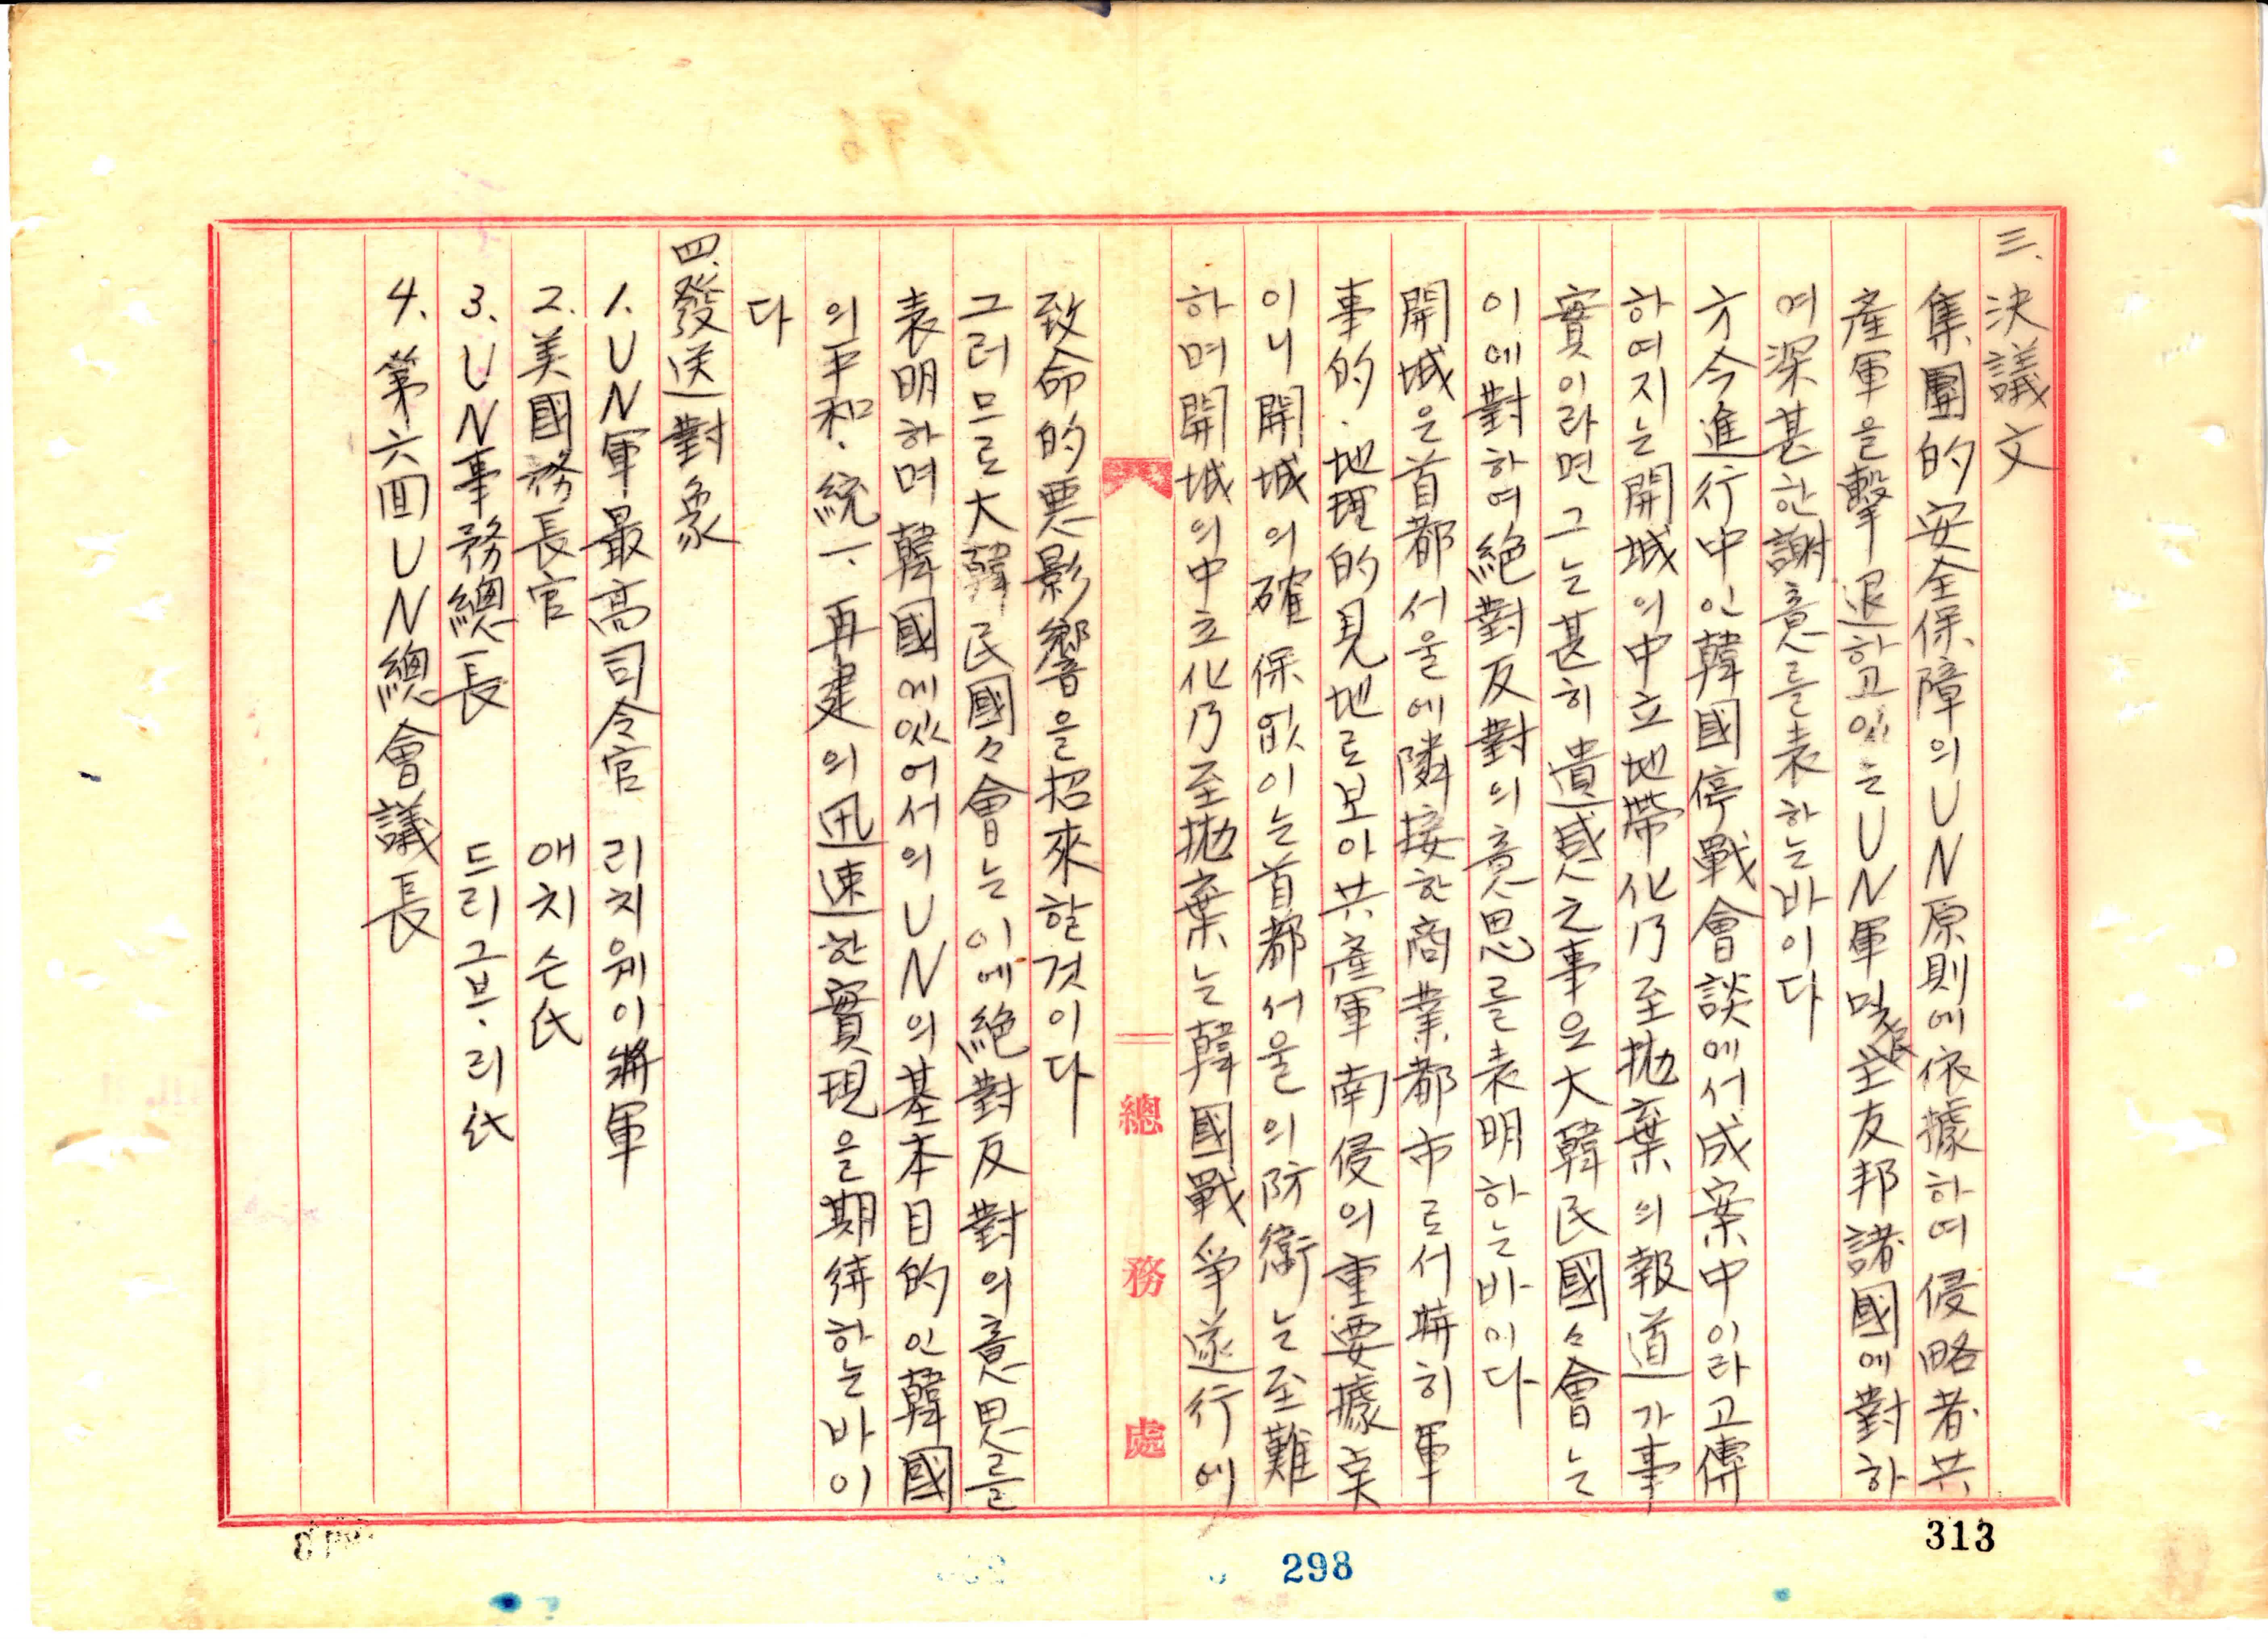 三. 決議文
集團的安全保障의UN原則에依據하여侵略者共
產軍을擊退하고있는UN軍및民主友邦諸國에對하
여深甚한謝意를表하는바이다
方今進行中인韓國停戰會談에서成案中이라고傳
하여지는開城의中立地帶化乃至抛棄의報道가事
實이라면그는甚히遺憾之事요大韓民國々會는
이에對하여絶對反對의意思를表明하는바이다
開城은首都서울에隣接한商業都市로서特히軍
事的·地理的見地로보아共產軍南侵의重要據点
이니開城의確保없이는首都서울의防衛는至難
하며開城의中立化乃至抛棄는韓國戰爭遂行에
總務處
致命的惡影響을招來할것이다
그러므로大韓民國々會는이에絶對反對의意思를
表明하며韓國에있어서의UN의基本目的인韓國
의平和·統一·再建의迅速한實現을期待하는바이
다
四. 發送對象
1. UN軍最高司令官 리치웨이將軍
2. 美國務長官 애치슨氏
3. UN事務總長 드리그브·리氏
4. 第六回UN總會議長
313
298